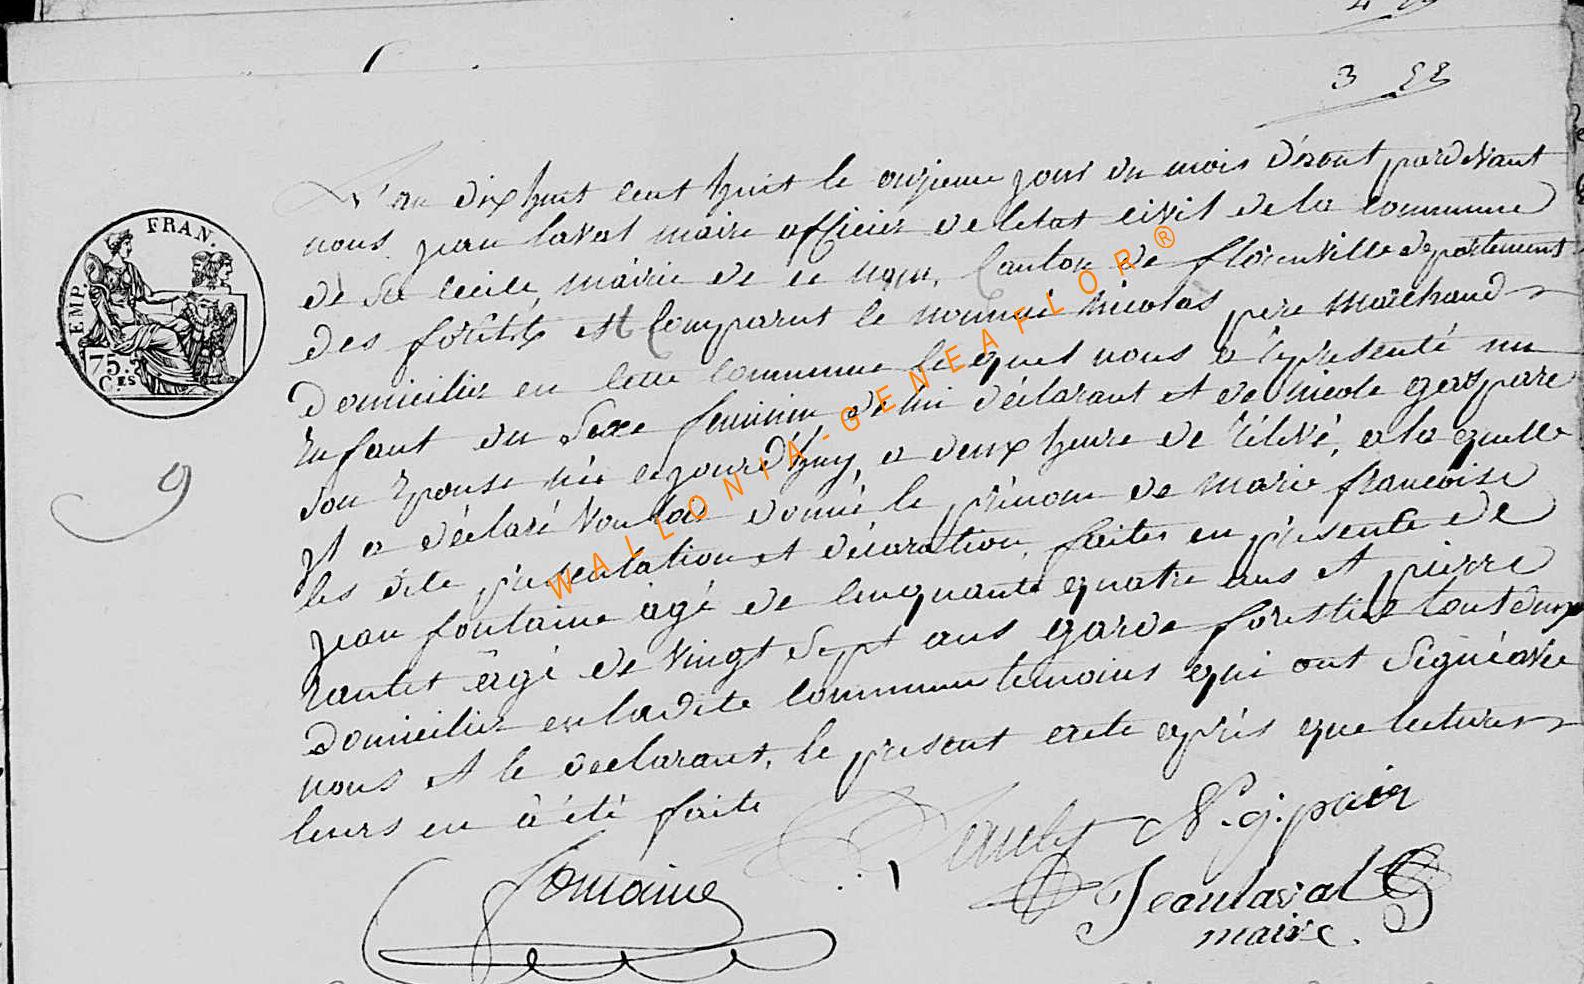 3 88
TIMP. FRAN.
75. Ces
9
L'an dix huit cent huit le onzieme jour du mois d'aout pardevant
nous jean laval maire officier de letat civil de la commune
de Ste Cécile, mairie de ce nom, Canton de florenville departement
des forêts est Comparut le nommé nicolas pere marchand
domicilier en cette commune lequel nous a representé un
enfant du sexe feminin de lui déclarant et de nicole
son epouse née cejourd'huy, a deux heure de rélevé, a la quelle
jl a déclaré vouloir donné le prénom de marie francoise
les dite presentation et décaration, faites en présente de
jean fontaine agé de cinquante quatre ans et pierre
âgé de vingt sept ans garde forestier tout deux
domicilier en ladite commune temoins qui ont signé avec
nous et le declarant, le present acte après que lecture
leurs en à été faite
N. j. pair
fontaine
Jean laval
maire.
WALLONIA-GENEAFLOR®